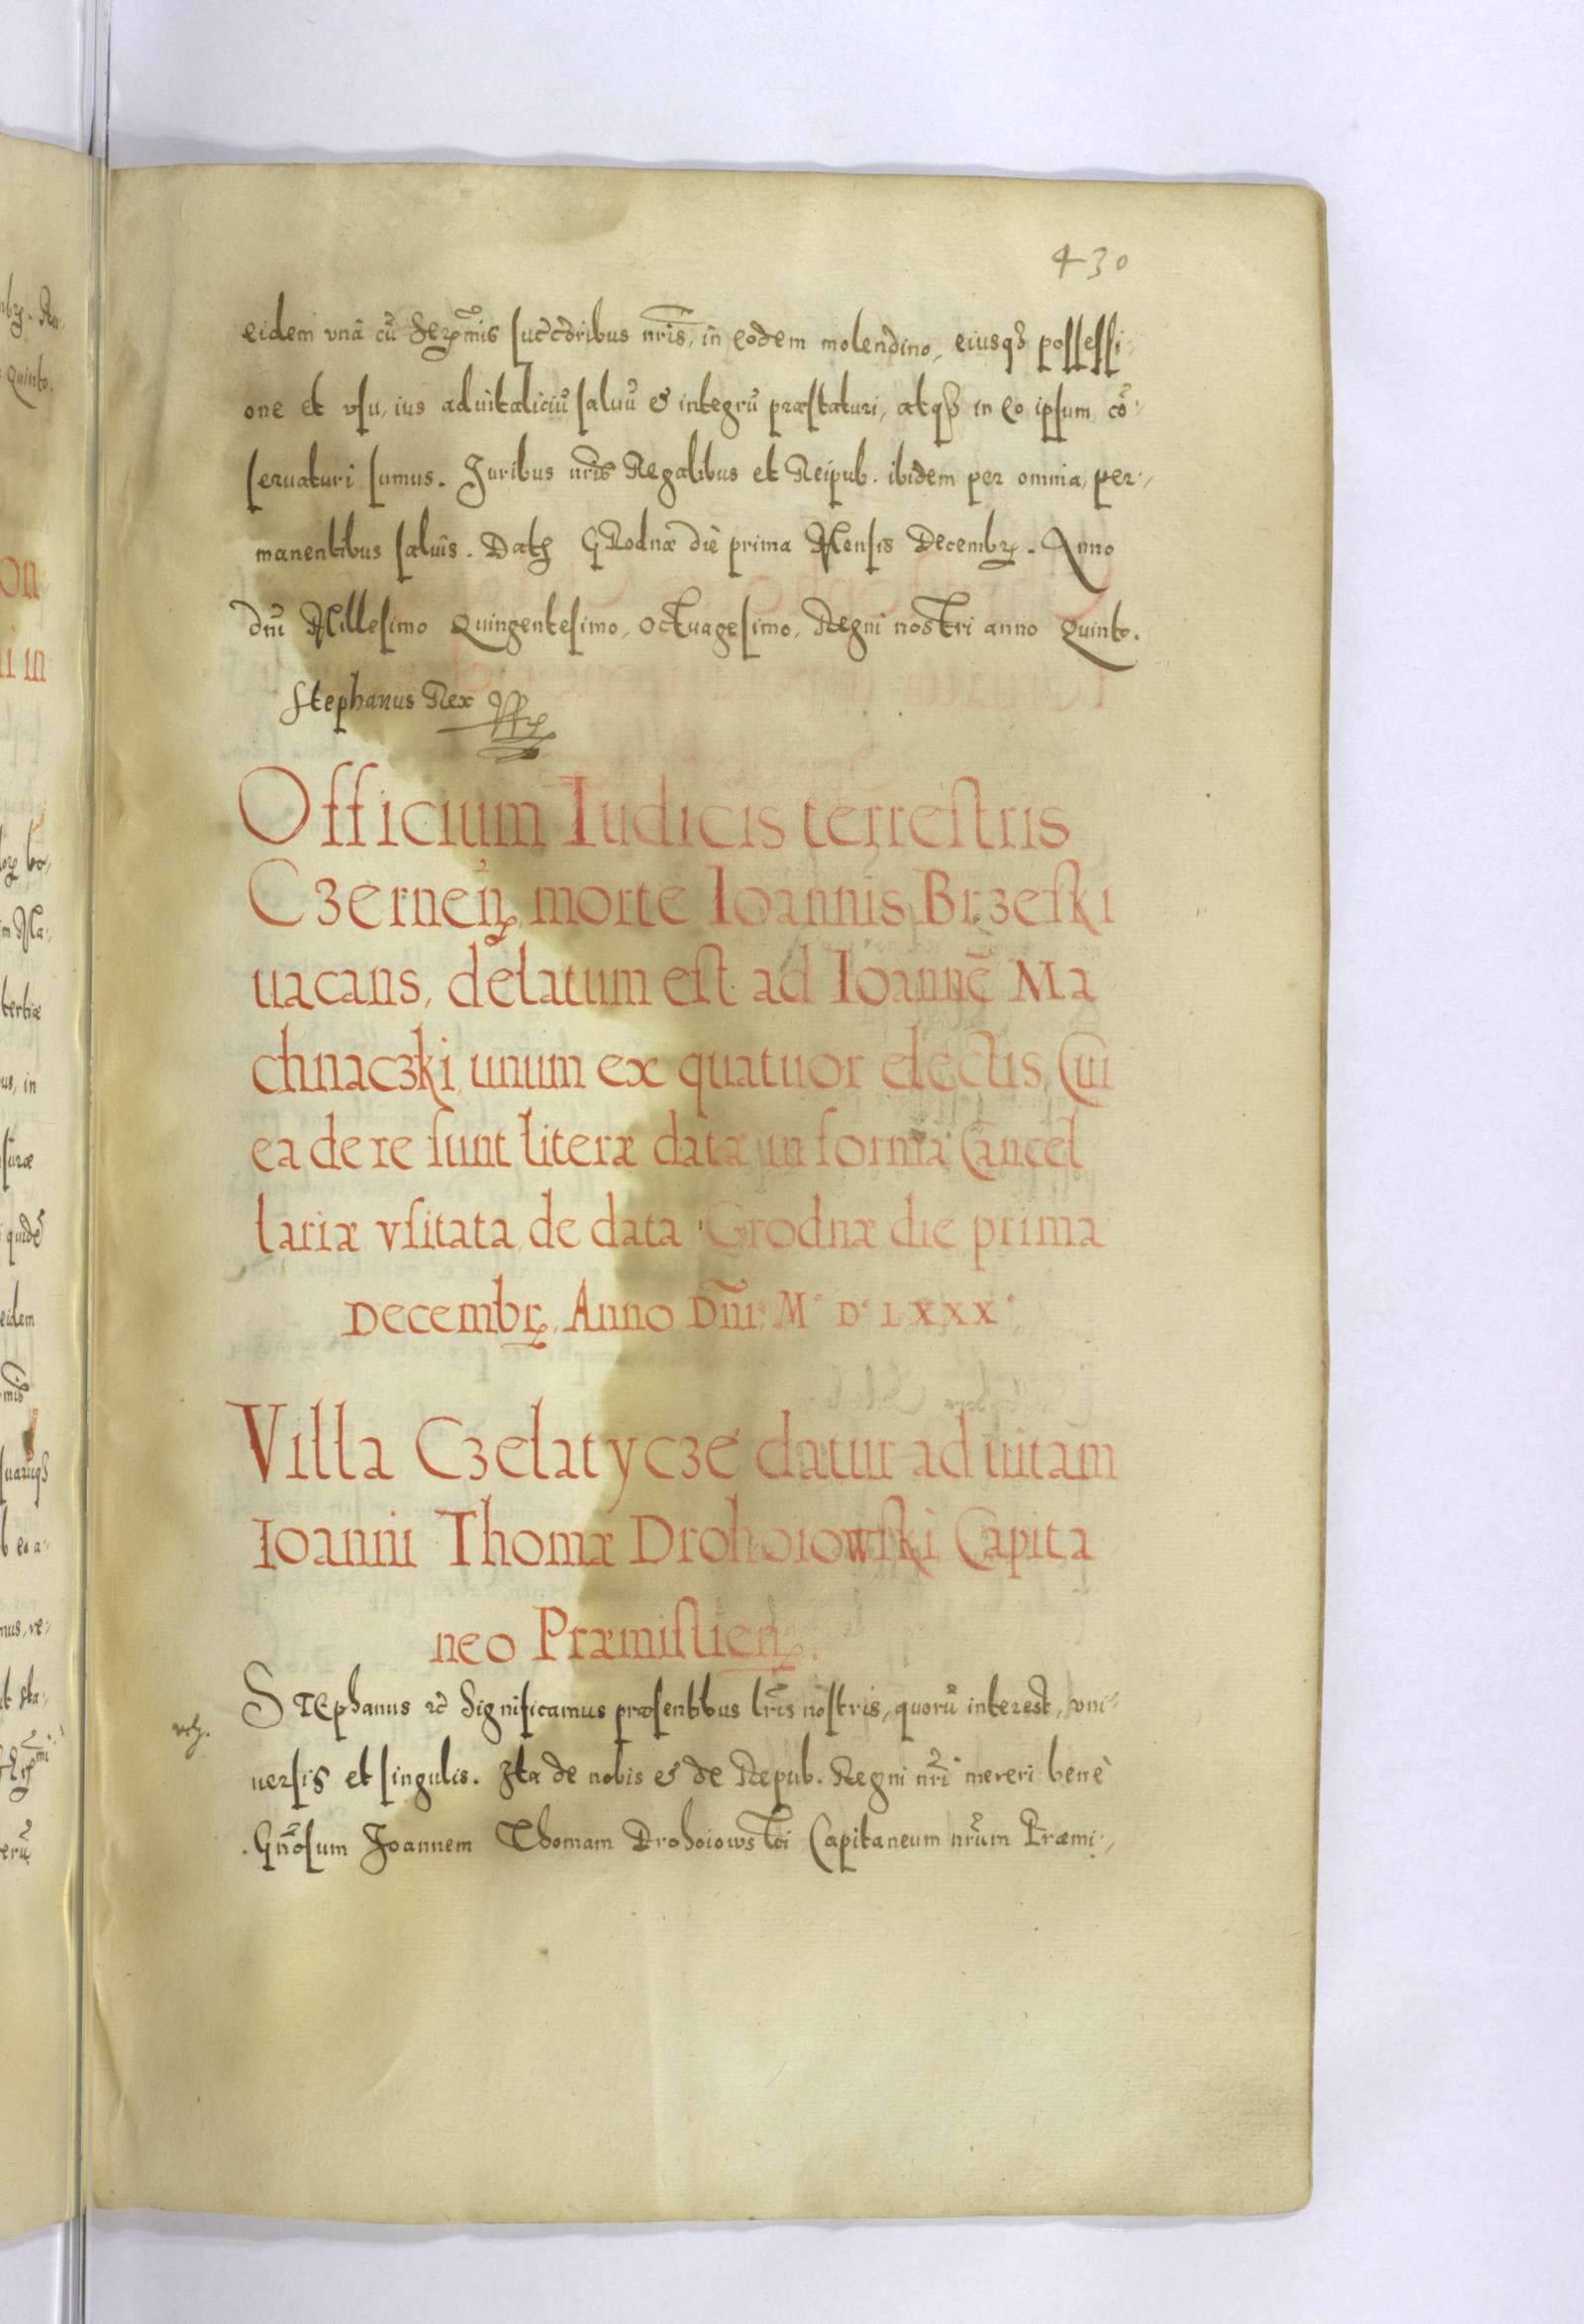 430
eidem vnâ cũ Serẽmis succõribus nrĩs, in eodem molendino, eiusqꝫ possessi-
one et vsu, ius aduitaliciũ saluũ & integrũ præstaturi, atqꝫ in eo ipsum cõ-
seruaturi sumus. Juribus nrĩs Regalibus et Reipub. ibidem per omnia, per-
manentibus saluis. Datꝫ Grodnæ die prima Mensis Decembrꝭ. Anno
Dnĩ Millesimo Quingentesimo, Octuagesimo, Regni nostri anno Quinto.
Stephanus Rex
Officium Iudicis terrestris
Czerneñ, morte Ioannis Brzeski
uacans, delatum est ad Ioannẽ Ma
chnaczki, unum ex quatuor electis, Cui
ea de re sunt literæ datæ in forma Cancel
lariæ vsitata, de data Grodnæ die prima
Decembrꝭ, Anno Dnĩ M° D° LXXX°
Villa Czelatycze datur ad uitam
Ioanni Thomæ Drohoiowski Capita
neo Præmislieñ.
STEphanus ꝛc̃ Significamus præsentibus lrĩs nostris, quorũ interest, vni-
uersis et singulis. Ita de nobis & de Repub. Regni nrĩ mereri benè
Gnõsum Joannem Thomam Drohoiowski Capitaneum nrũm Præmi-